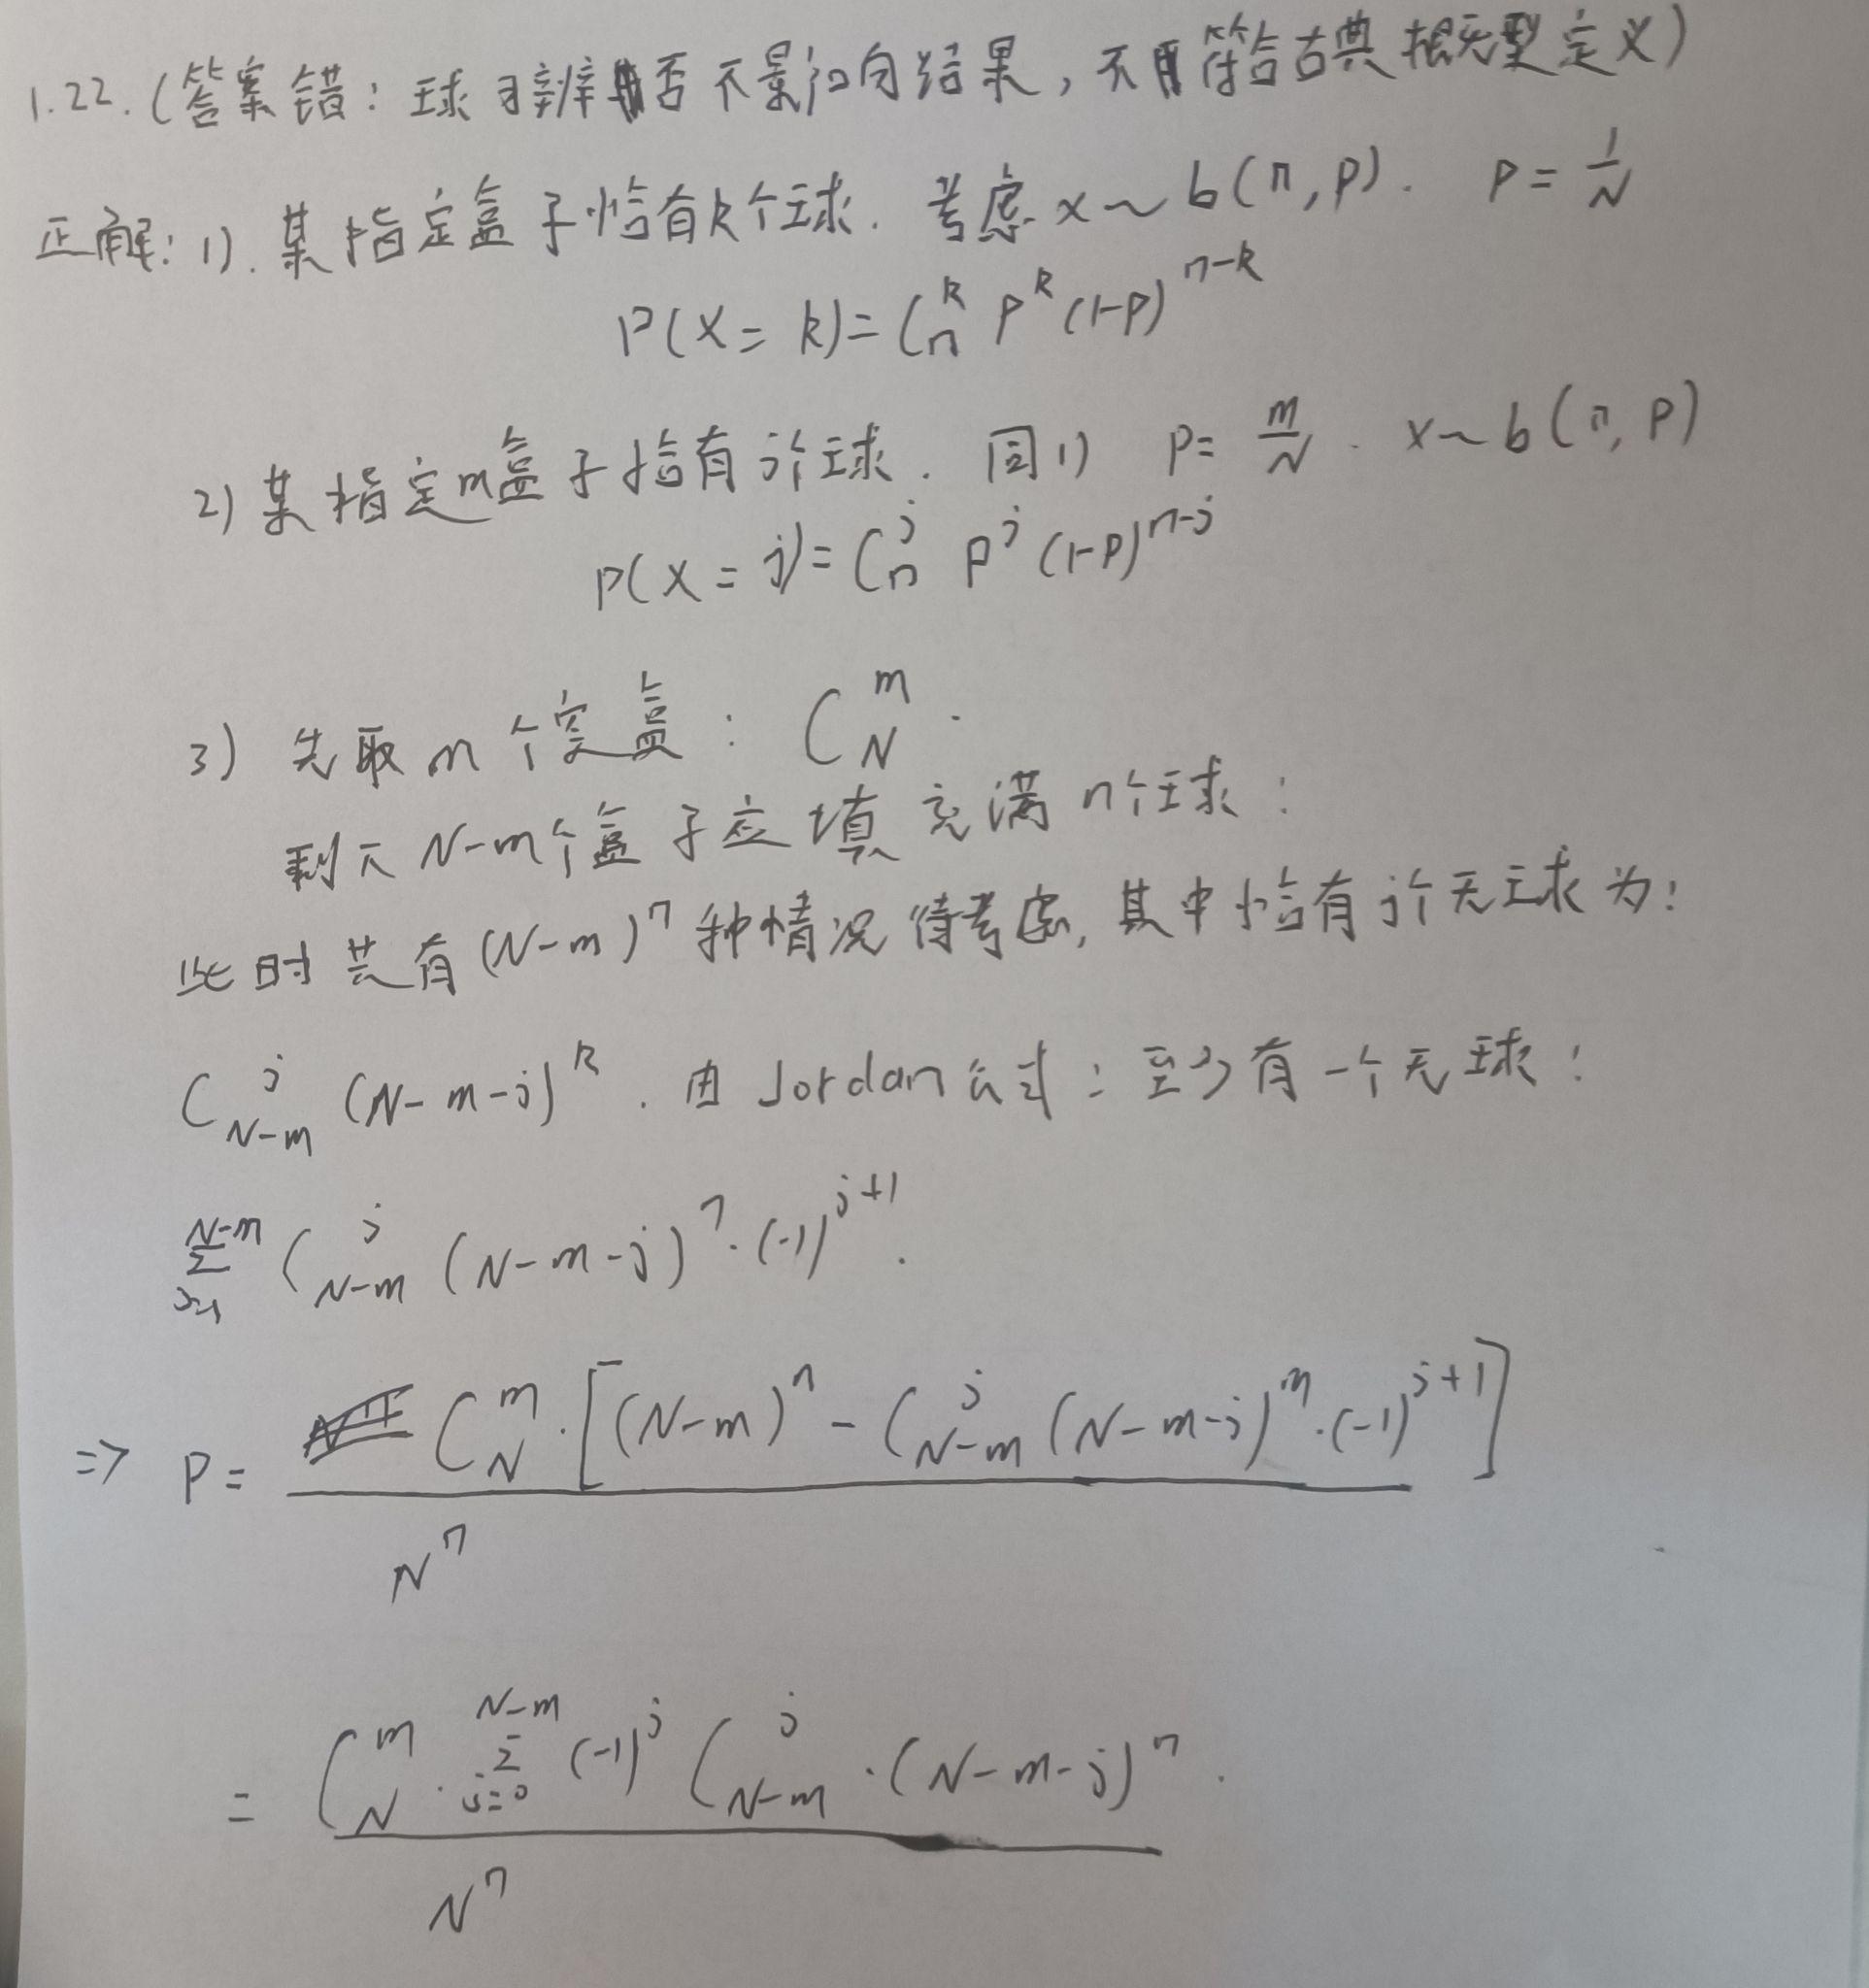 1.22.(答案错: 球可辨与否不影响结果, 不符合古典概型定义)
正解: 1). 某指定盒子恰有k个球. 考虑 x~b(n,p). p=1/N
P(X=k)=C_n^k p^k (1-p)^{n-k}
2) 某指定m盒子恰有j个球. 同1) p=m/N. x~b(n,p)
P(X=j)=C_n^j p^j (1-p)^{n-j}
3) 先取m个空盒: C_N^m.
剩下N-m个盒子应填充满n个球:
此时共有(N-m)^n种情况待考虑, 其中恰有j个无球为:
C_{N-m}^j (N-m-j)^k. 由Jordan公式: 至少有一个无球:
∑_{j=1}^{N-m} C_{N-m}^j (N-m-j)^n·(-1)^{j+1}.
=> P= C_N^m·[(N-m)^n - C_{N-m}^j (N-m-j)^n·(-1)^{j+1}]
N^n
= C_N^m·∑_{j=0}^{N-m} (-1)^j C_{N-m}^j·(N-m-j)^n.
N^n